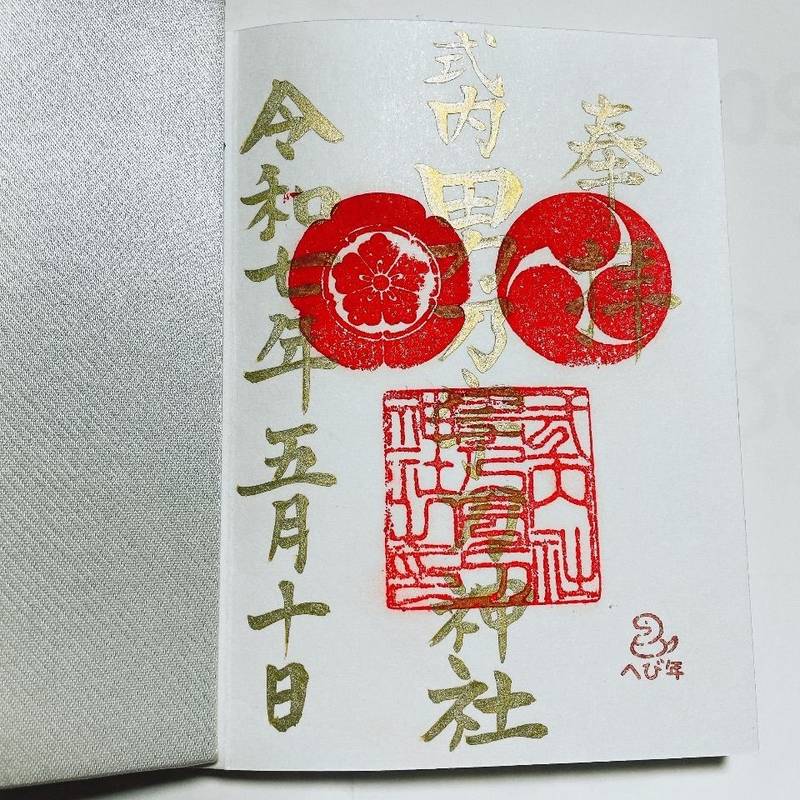 奉拝
式内 男乃宇刀神社
令和七年五月十日
式内社
神社之印
へび年